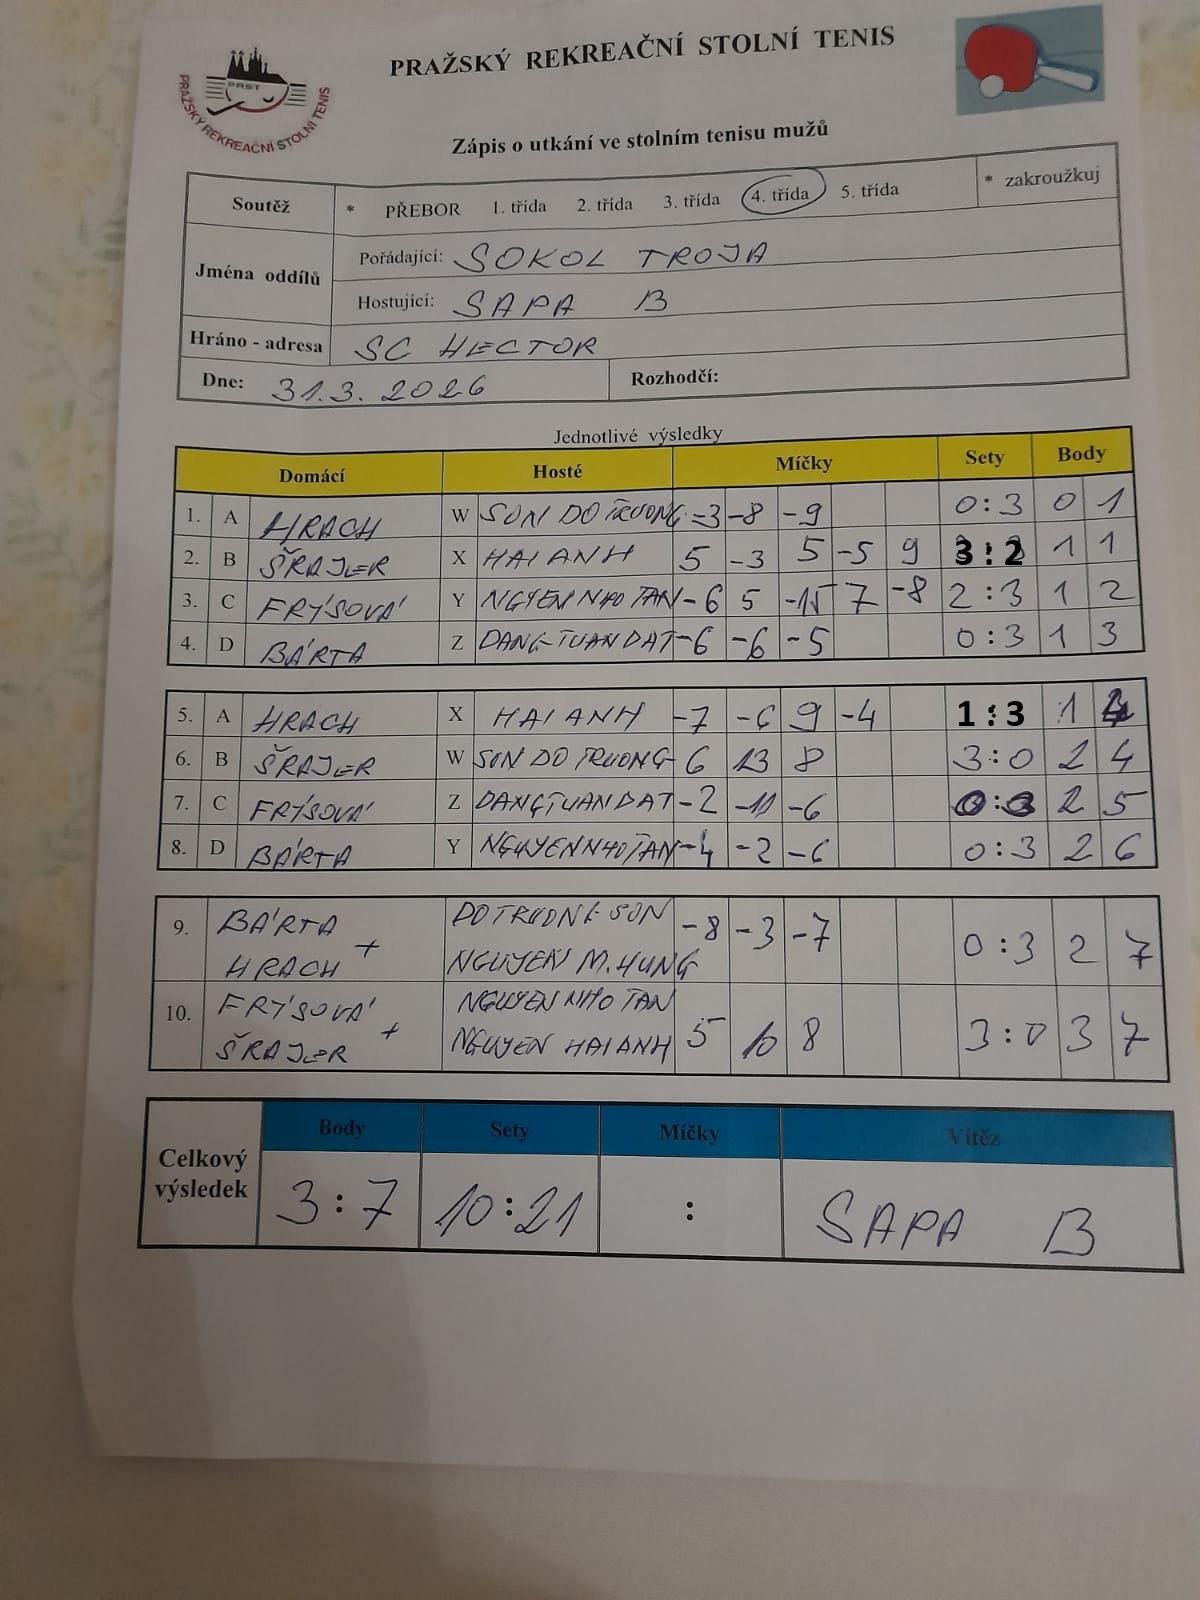 PRAŽSKÝ REKREAČNÍ STOLNÍ TENIS
PRST
PRAŽSKÝ REKREAČNÍ STOLNÍ TENIS
Zápis o utkání ve stolním tenisu mužů
Soutěž * PŘEBOR 1. třída 2. třída 3. třída 4. třída 5. třída * zakroužkuj
Jména oddílů
Pořádající: SOKOL TROJA
Hostující: SAPA B
Hráno - adresa SC HECTOR
Dne: 31.3. 2026 Rozhodčí:
Jednotlivé výsledky
Domácí Hosté Míčky Sety Body
1. A HRACH W SON DO TRUONG -3 -8 -9 0:3 0 1
2. B ŠRAJER X HAI ANH 5 -3 5 -5 9 3:2 1 1
3. C FRÝSOVÁ Y NGYEN NHO TAN -6 5 -15 7 -8 2:3 1 2
4. D BÁRTA Z DANG TUAN DAT -6 -6 -5 0:3 1 3
5. A HRACH X HAI ANH -7 -6 9 -4 1:3 1 4
6. B ŠRAJER W SON DO TRUONG 6 13 8 3:0 2 4
7. C FRÝSOVÁ Z DANG TUAN DAT -2 -11 -6 0:3 2 5
8. D BÁRTA Y NGUYEN NHO TAN -4 -2 -6 0:3 2 6
9. BÁRTA + HRACH DO TRUONG SON NGUYEN M. HUNG -8 -3 -7 0:3 2 7
10. FRÝSOVÁ + ŠRAJER NGUYEN NHO TAN NGUYEN HAI ANH 5 10 8 3:0 3 7
Celkový výsledek
Body Sety Míčky Vítěz
3:7 10:21 : SAPA B